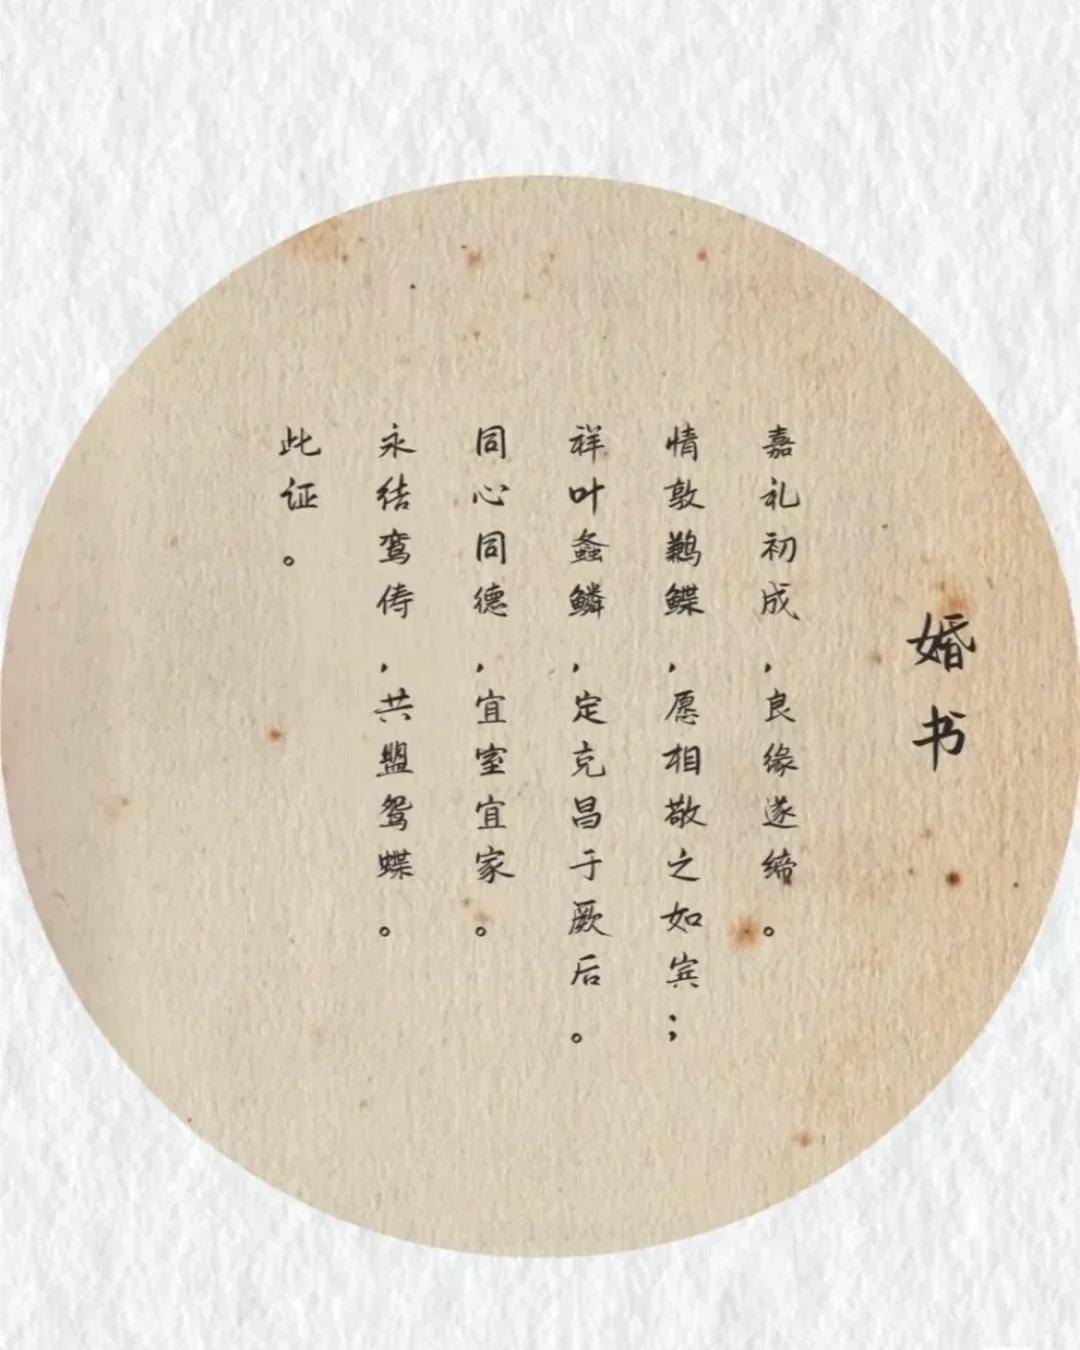 婚书
嘉礼初成，良缘遂缔。
情敦鹣鲽，愿相敬之如宾；
祥叶螽鳞，定克昌于厥后。
同心同德，宜室宜家。
永结鸾俦，共盟鸳蝶。
此证。